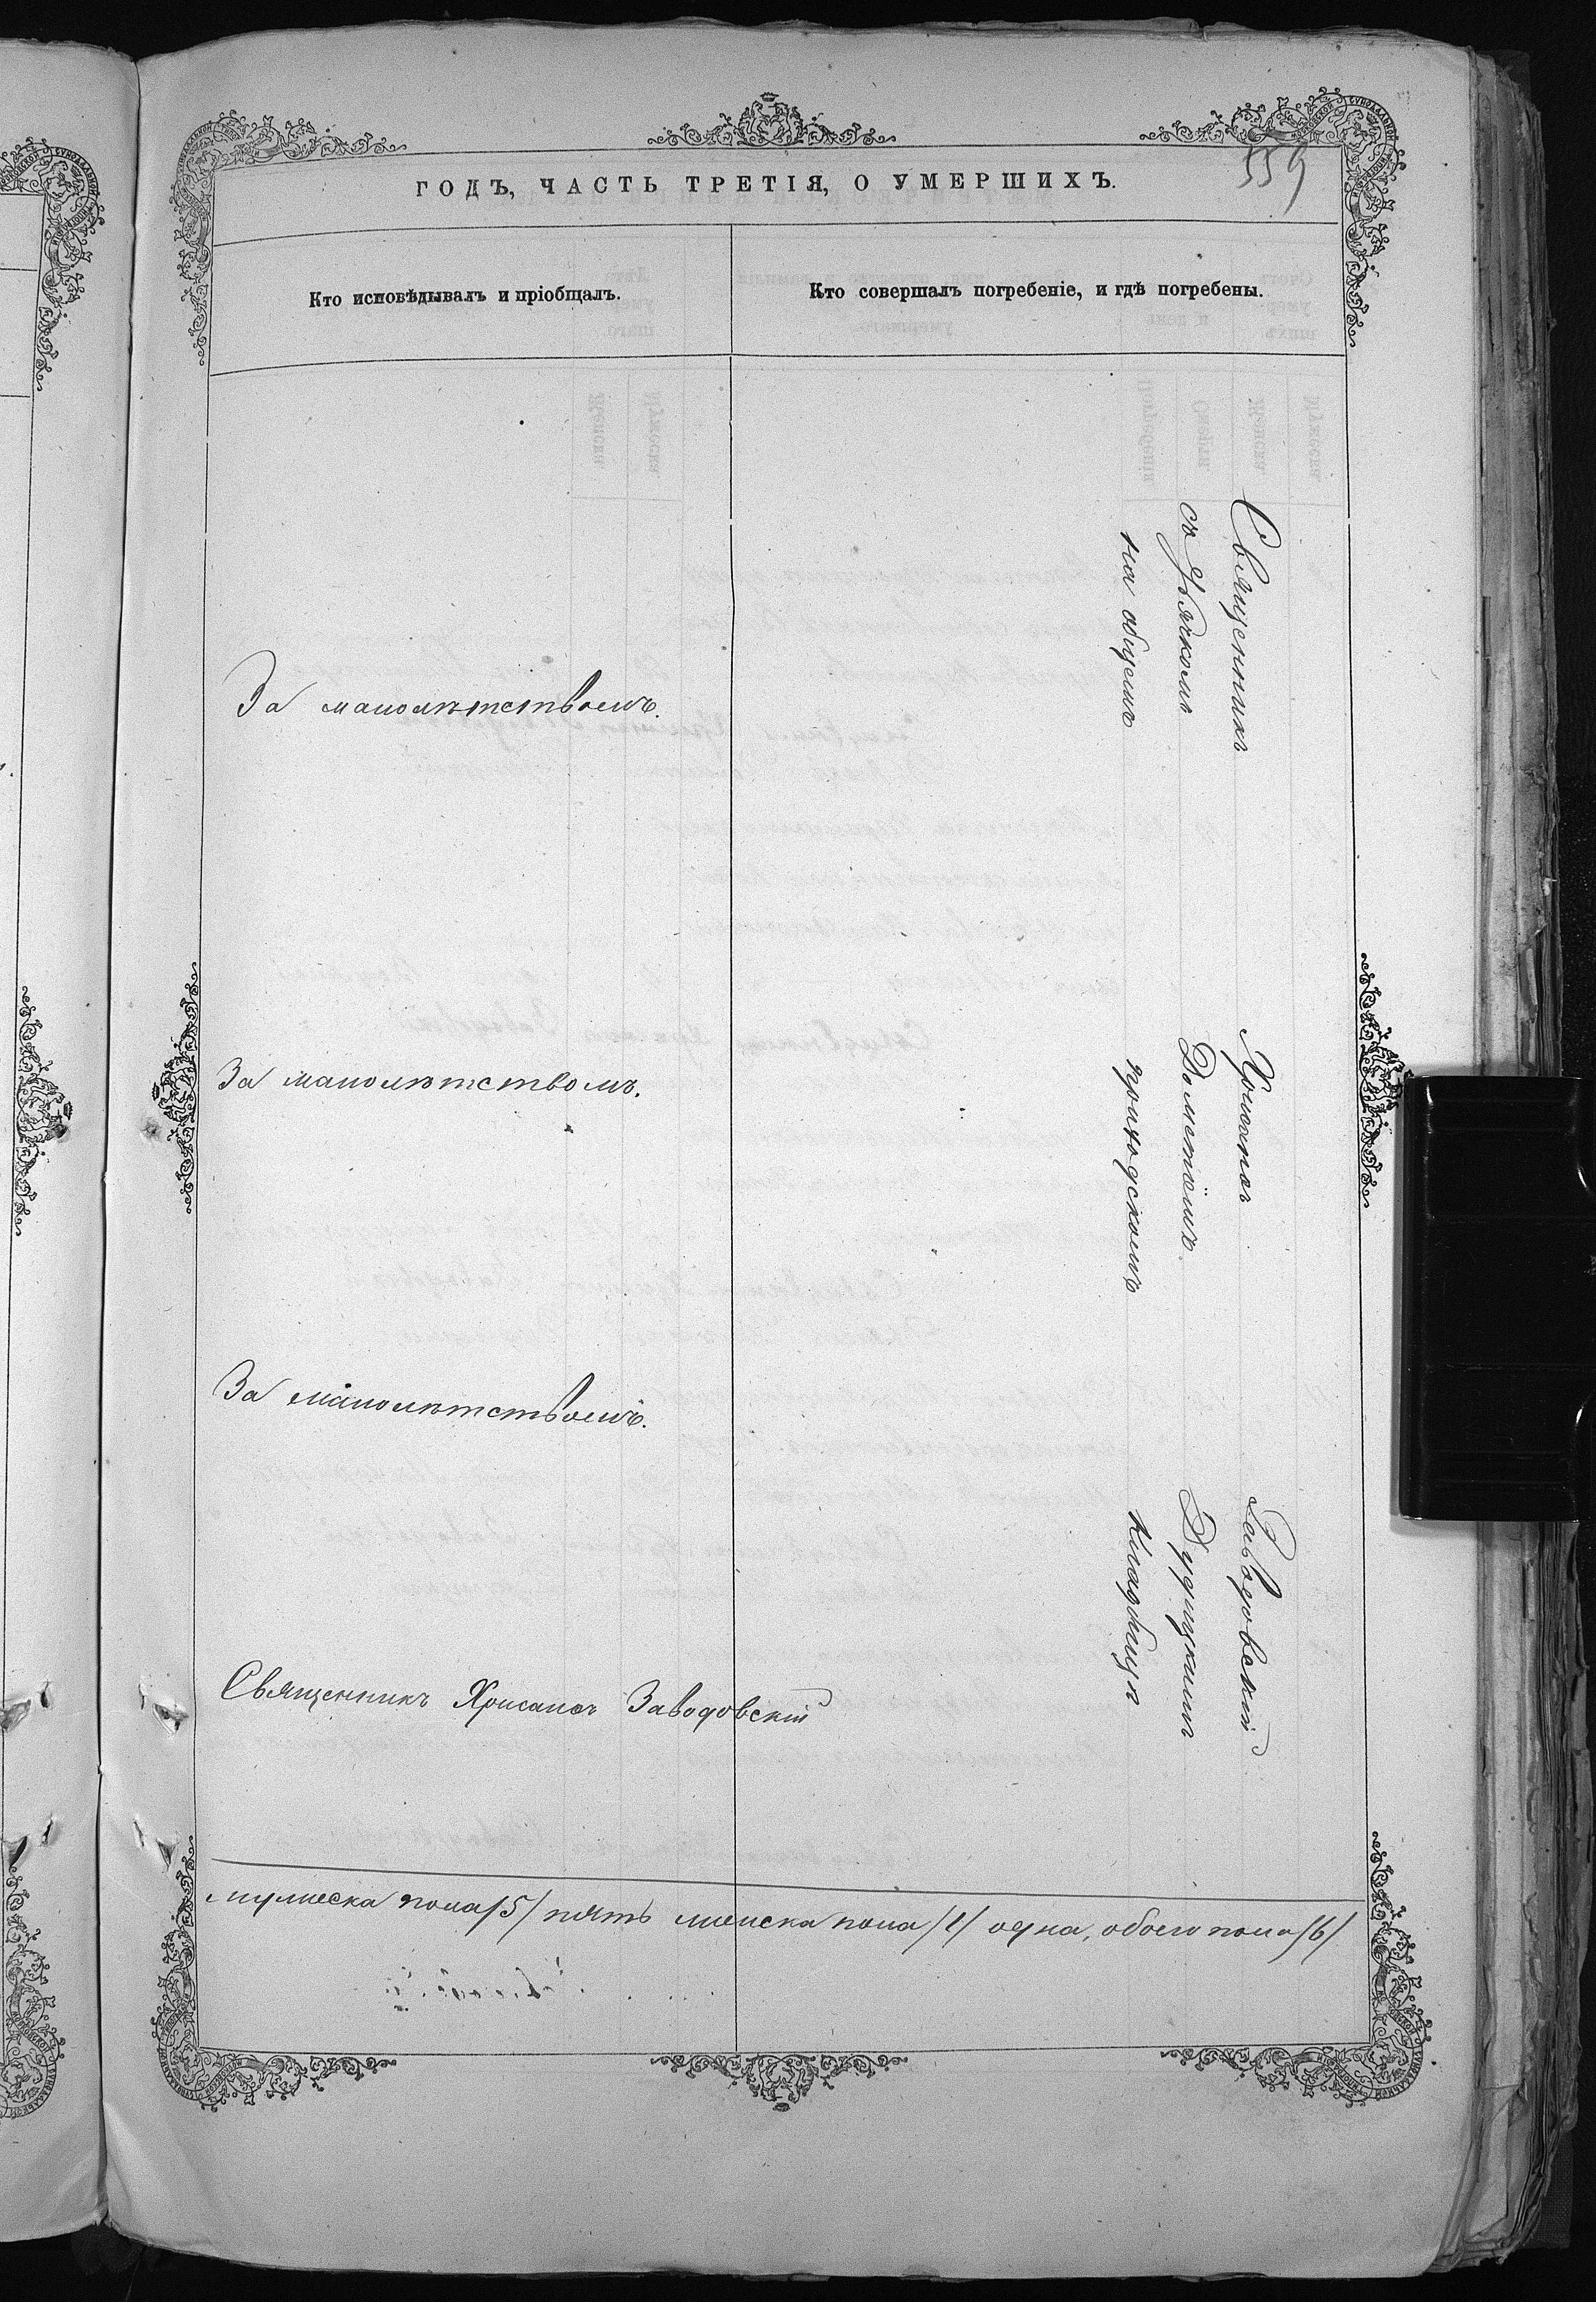 559
ГОДЪ, ЧАСТЬ ТРЕТІЯ, О УМЕРШИХЪ.
Кто исповѣдывалъ и пріобщалъ.
Кто совершалъ погребеніе, и гдѣ погребены.
За малолѣтствомъ.
За малолѣтствомъ.
За малолѣтствомъ.
Священникъ Хрисанѳъ Заводовскій
Священникъ Хрисанѳъ Заводовскій
съ Дьячкомъ Дометіемъ Дудицкимъ
на общемъ приходскомъ кладбищѣ
мужеска пола /5/ пять женска пола /1/ одна, обоего пола /6/